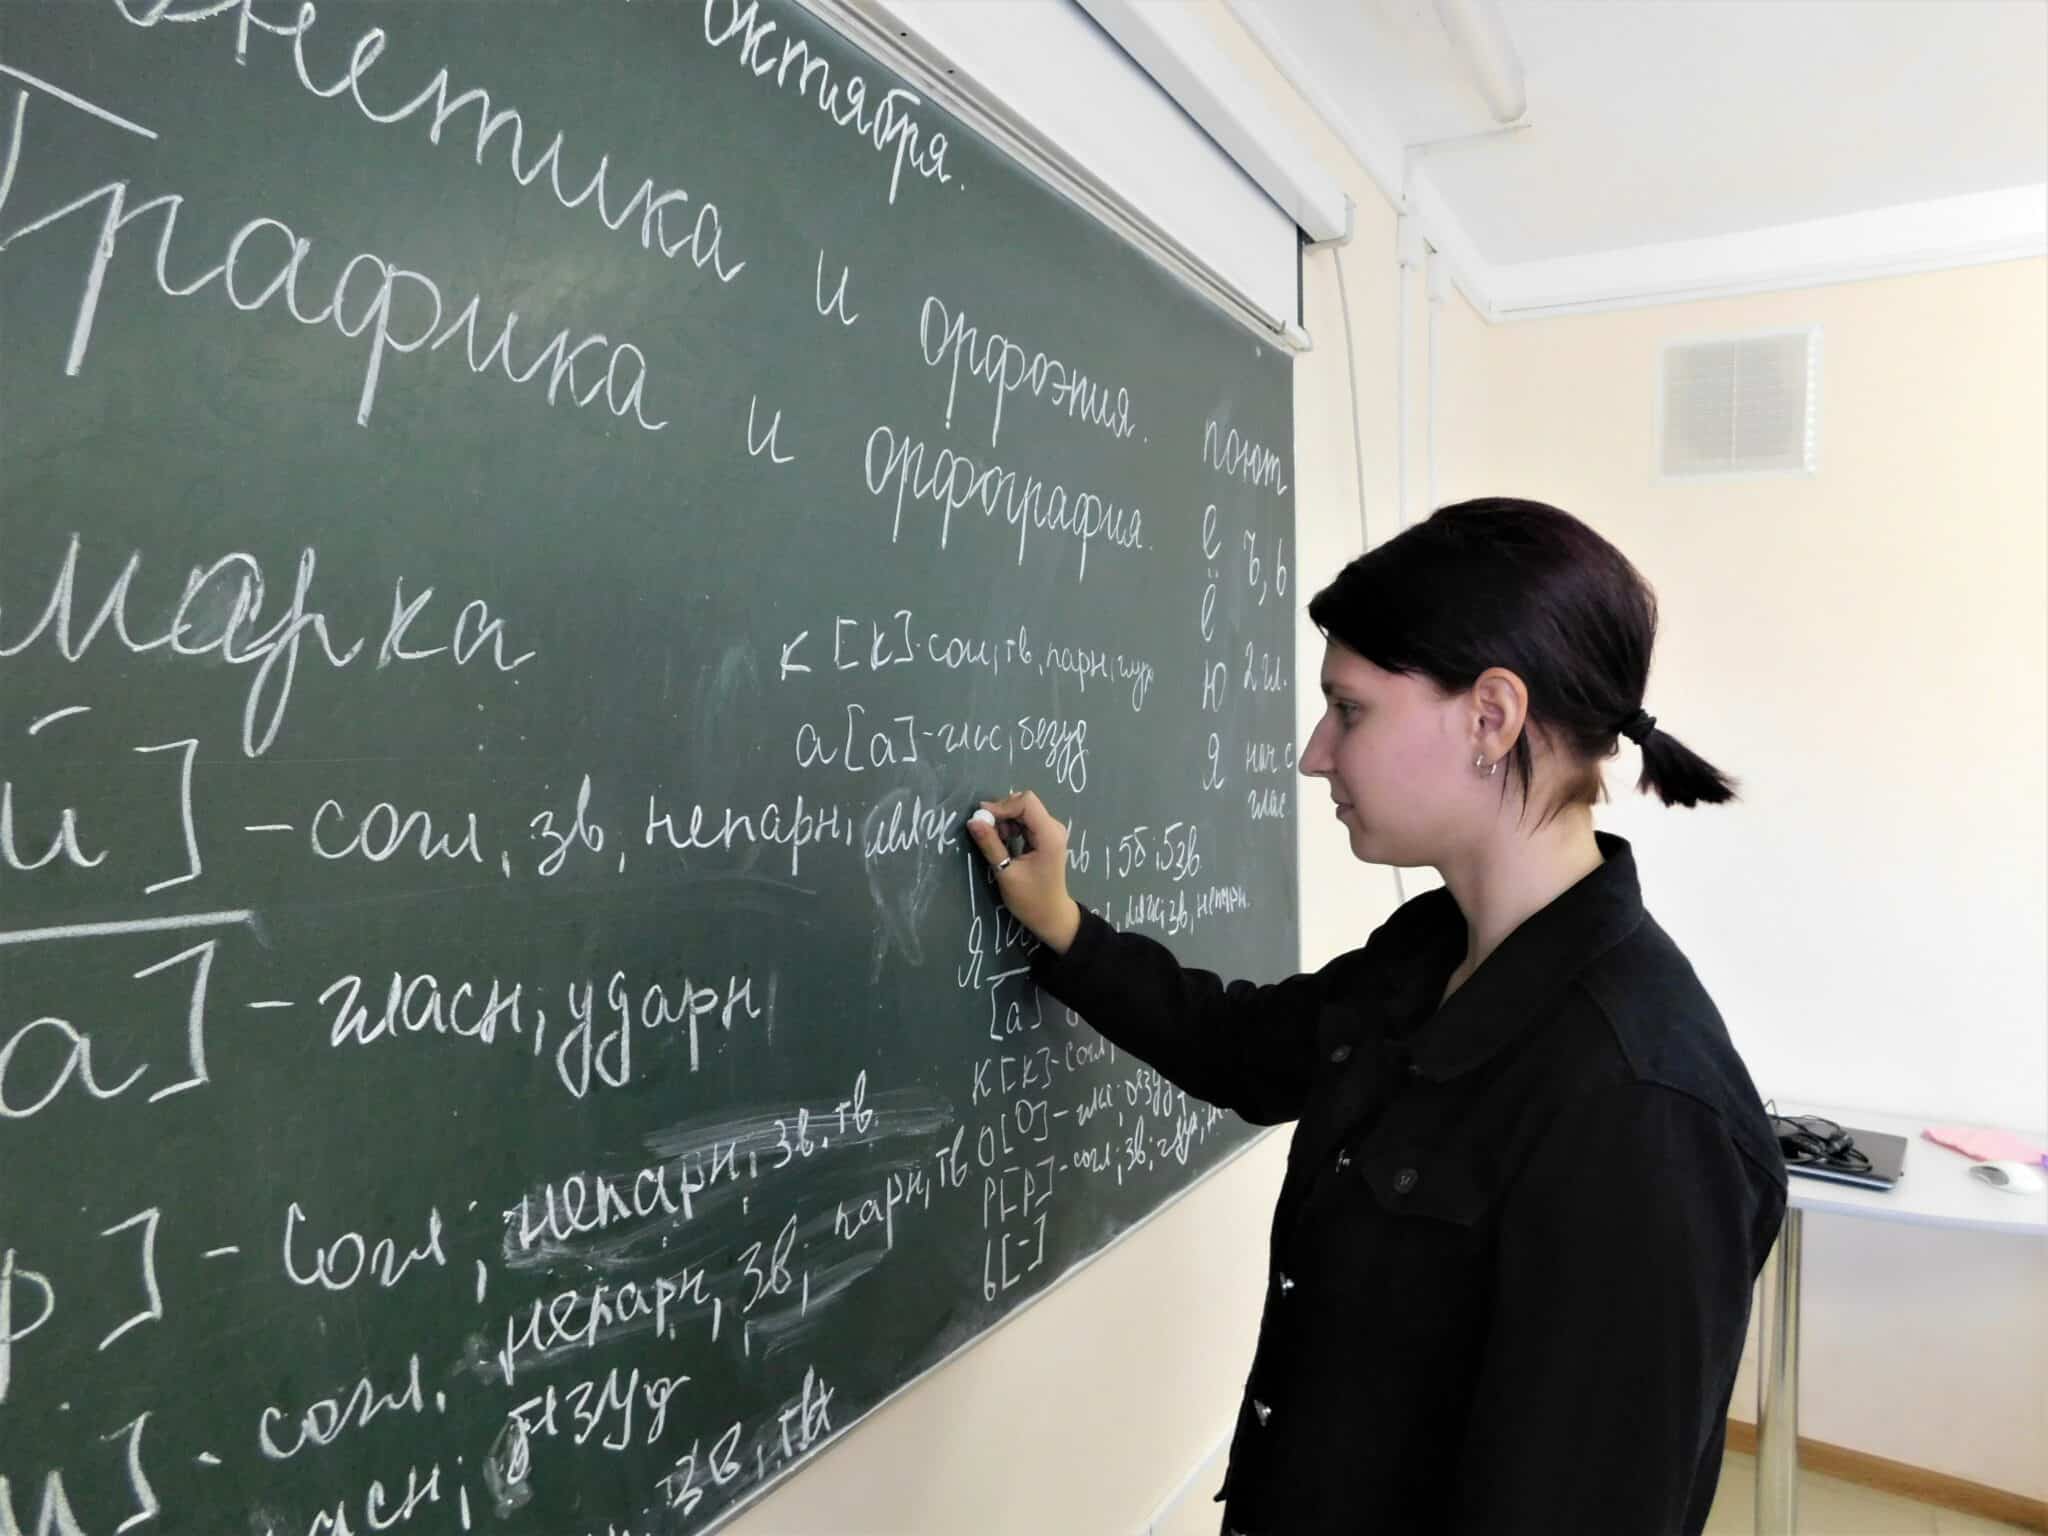 октября.
нетика и орфоэпия.
Графика и орфография.
марка
й] - согл, зв, непарн, мягк
а] - гласн, ударн
р] - согл, непарн, зв. тв.
согл. непарн, зв, парн, тв
безуд
зв, тв
к [к] - согл, тв, парн, глух
а [а] - глас, безуд
, 5б, 5зв
мягк, зв, непарн.
я
[а]
к [к] - согл,
о [о] -
р [р] - согл, зв,
ь [-]
поют
е ъ, ь
ё
ю 2 гл.
я нач. с
глас.